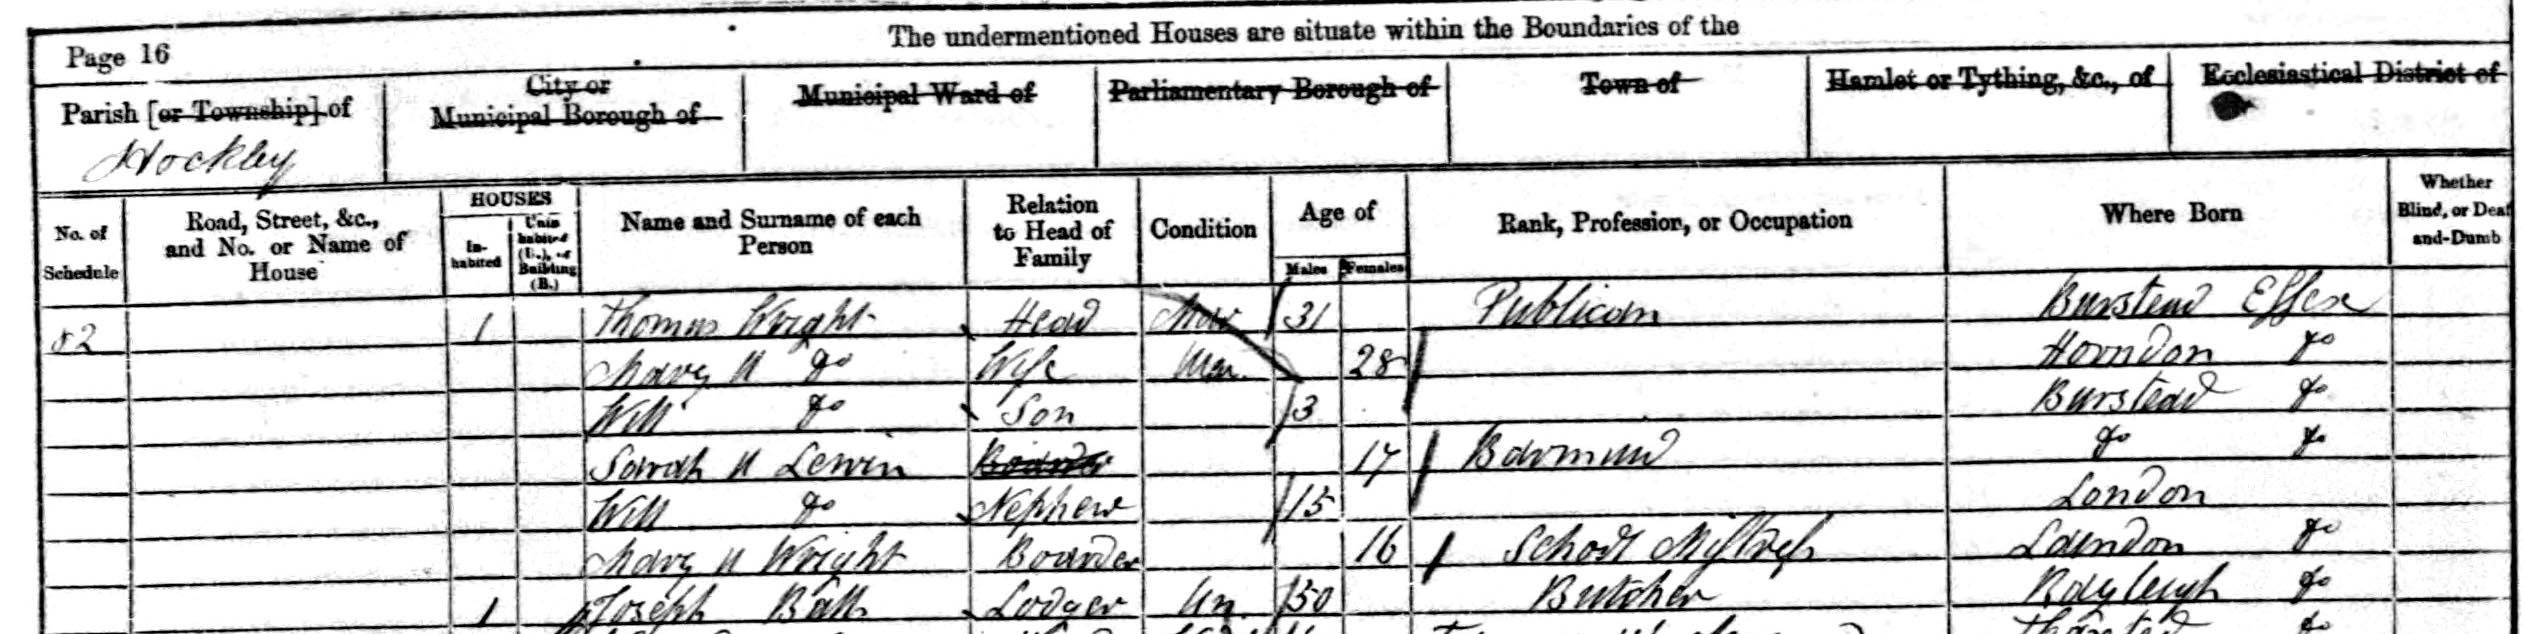 The undermentioned Houses are situate within the Boundaries of the
Page 16
Parish [or Township] of
Hockley
City or Municipal Borough of
Municipal Ward of
Parliamentary Borough of
Town of
Hamlet or Tything, &c., of
Ecclesiastical District of
No. of Schedule
Road, Street, &c., and No. or Name of House
HOUSES
In-habited
Unin habited (U.), or Building (B.)
Name and Surname of each Person
Relation to Head of Family
Condition
Age of
Males
Females
Rank, Profession, or Occupation
Where Born
Whether Blind, or Deaf-and-Dumb
52 1 Thomas Wright Head Mar 31 Publican Burstead Essex
Mary A do Wife Mar 28 Horndon do
Will do Son 3 Burstead do
Sarah A Lewin Boarder 17 Barmaid do do
Will do Nephew 15 London
Mary A Wright Boarder 16 School Mistress Laindon do
1 Joseph Ball Lodger Un 50 Butcher Rayleigh do